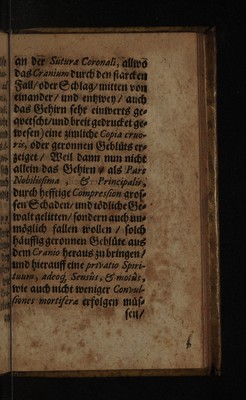 an der Suturæ Coronali, allwo
das Cranium durch den starcken
Fall/ oder Schlag/ mitten von
einander/ und entzwey/ auch
das Gehirn sehr einwerts ge-
qvetscht/und breit gedrucket ge-
wesen/ eine zimliche Copia cruo-
ris, oder geronnen Geblüts er-
zeiget / Weil dann nun nicht
allein das Gehirn / als Pars
Nobilissima, & Principalis,
durch hefftige Compression gros-
sen Schaden/ und tödliche Ge-
walt gelitten/ sondern auch un-
möglich fallen wollen / solch
häuffig geronnen Geblüte aus
dem Cranio heraus zu bringen/
und hierauff eine privatio Spiri-
tuum, adeoq; Sensûs, & motûs,
wie auch nicht weniger Convul-
siones mortiferæ erfolgen müs-
sen/